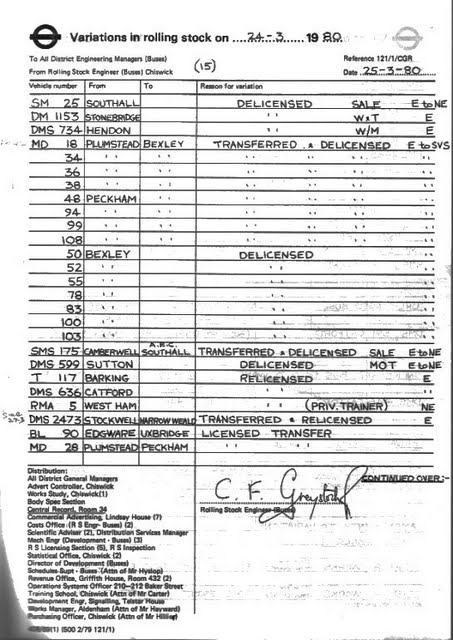 Variations in rolling stock on ....24-3...... 19 80.
To All District Engineering Managers (Buses) Reference 121/1/CGR
From Rolling Stock Engineer (Buses) Chiswick (15) Date 25-3-80
Vehicle number From To Reason for variation
SM 25 SOUTHALL DELICENSED SALE E to NE
DM 1153 STONEBRIDGE " W&T E
DMS 734 HENDON " W/M E
MD 18 PLUMSTEAD BEXLEY TRANSFERRED & DELICENSED E to SVS
34 " " " " " "
36 " " " " " "
38 " " " " " "
48 PECKHAM " " " " "
94 " " " " " "
99 " " " " " "
108 " " " " " "
50 BEXLEY DELICENSED "
52 " " "
55 " " "
78 " " "
83 " " "
100 " " "
103 " " "
SMS 175 CAMBERWELL A.E.C. SOUTHALL TRANSFERRED & DELICENSED SALE E to NE
DMS 599 SUTTON DELICENSED MOT E to NE
T 117 BARKING RELICENSED E
DMS 636 CATFORD " "
RMA 5 WEST HAM " (PRIV. TRAINER) NE
DMS 2473 STOCKWELL HARROW WEALD TRANSFERRED & RELICENSED E
BL 90 EDGWARE UXBRIDGE LICENSED TRANSFER
MD 28 PLUMSTEAD PECKHAM " "
CONTINUED OVER:-
Distribution:
All District General Managers
Advert Controller, Chiswick
Works Study, Chiswick(1)
Body Spec Section
Central Record, Room 34
Commercial Advertising, Lindsay House (7)
Costs Office (R S Engr- Buses) (2)
Scientific Adviser (2), Distribution Services Manager
Mech Engr (Development - Buses) (3)
R S Licensing Section (5), R S Inspection
Statistical Office, Chiswick (2)
Director of Development (Buses)
Schedules Supt - Buses (Attn of Mr Hyslop)
Revenue Office, Griffith House, Room 432 (2)
Operations Systems Officer 210-212 Baker Street
Training School, Chiswick (Attn of Mr Carter)
Development Engr, Signalling, Telstar House
Works Manager, Aldenham (Attn of Mr Hayward)
Purchasing Officer, Chiswick (Attn of Mr Hillier)
C. F. Greystock
Rolling Stock Engineer (Buses)
(1) (500 2/79 121/1)